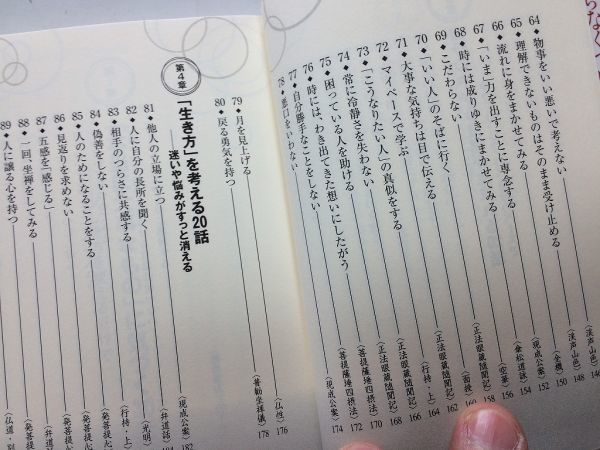 64◆物事をいい悪いで考えない――〈渓声山色〉146
65◆理解できないものはそのまま受け止める――〈渓声山色〉148
66◆流れに身をまかせてみる――〈全機〉150
67◆「いま」力を出すことに専念する――〈現成公案〉152
68◆時には成りゆきにまかせてみる――〈傘松道詠〉154
69◆こだわらない――〈空華〉156
70◆「いい人」のそばに行く――〈正法眼蔵随聞記〉158
71◆大事な気持ちは目で伝える――〈面授〉160
72◆マイペースで学ぶ――〈正法眼蔵随聞記〉162
73◆「こうなりたい人」の真似をする――〈行持・上〉164
74◆常に冷静さを失わない――〈正法眼蔵随聞記〉166
75◆困っている人を助ける――〈正法眼蔵随聞記〉168
76◆時には、わき出てきた想いにしたがう――〈菩提薩埵四摂法〉170
77◆自分勝手なことをしない――〈菩提薩埵四摂法〉172
78◆悪口をいわない――〈現成公案〉174
79◆月を見上げる――〈仏性〉176
80◆戻る勇気を持つ――〈普勧坐禅儀〉178
第4章
「生き方」を考える20話
――迷いや悩みがすっと消える
81◆他人の立場に立つ――〈現成公案〉182
82◆人に自分の長所を聞く――〈弁道話〉
83◆相手のつらさに共感する――〈光明〉
84◆偽善をしない――〈行持・上〉
85◆人のためになることをする――〈発菩提心
86◆見返りを求めない――〈発菩提心
87◆五感を「感じる」――〈発菩提
88◆一回、坐禅をしてみる――〈弁道
89◆人に譲る心を持つ――〈仏道・別